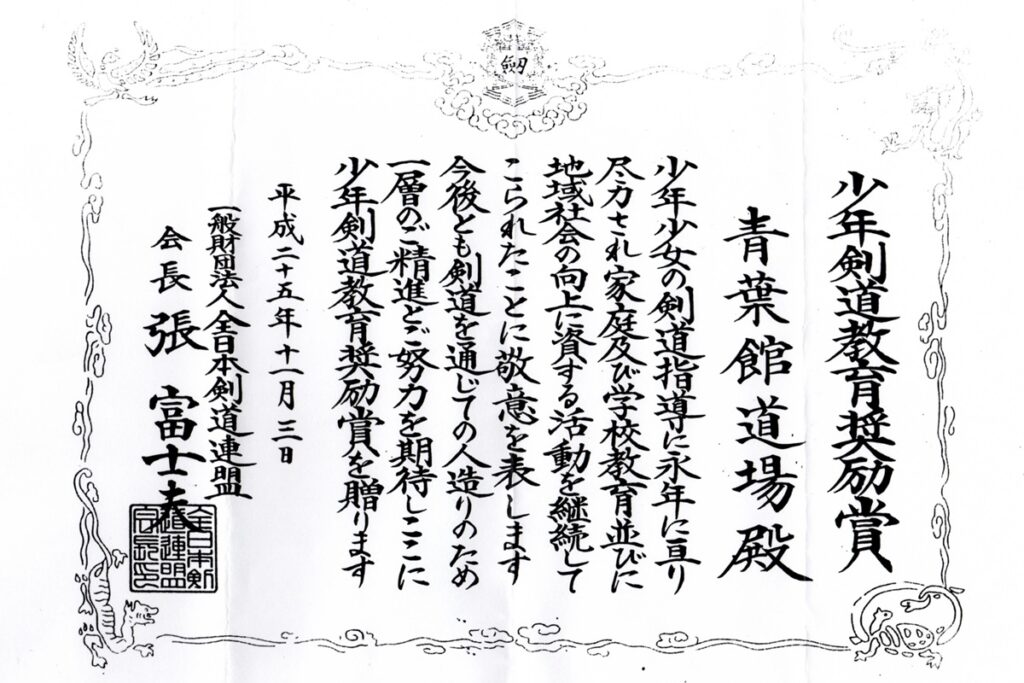 劔
少年剣道教育奨励賞
青葉館道場殿
少年少女の剣道指導に永年に亘り
尽力され家庭及び学校教育並びに
地域社会の向上に資する活動を継続して
こられたことに敬意を表します
今後とも剣道を通じての人造りのため
一層のご精進とご努力を期待しここに
少年剣道教育奨励賞を贈ります
平成二十五年十一月三日
一般財団法人全日本剣道連盟
会長張富士夫
全日本剣
道連盟
会長印